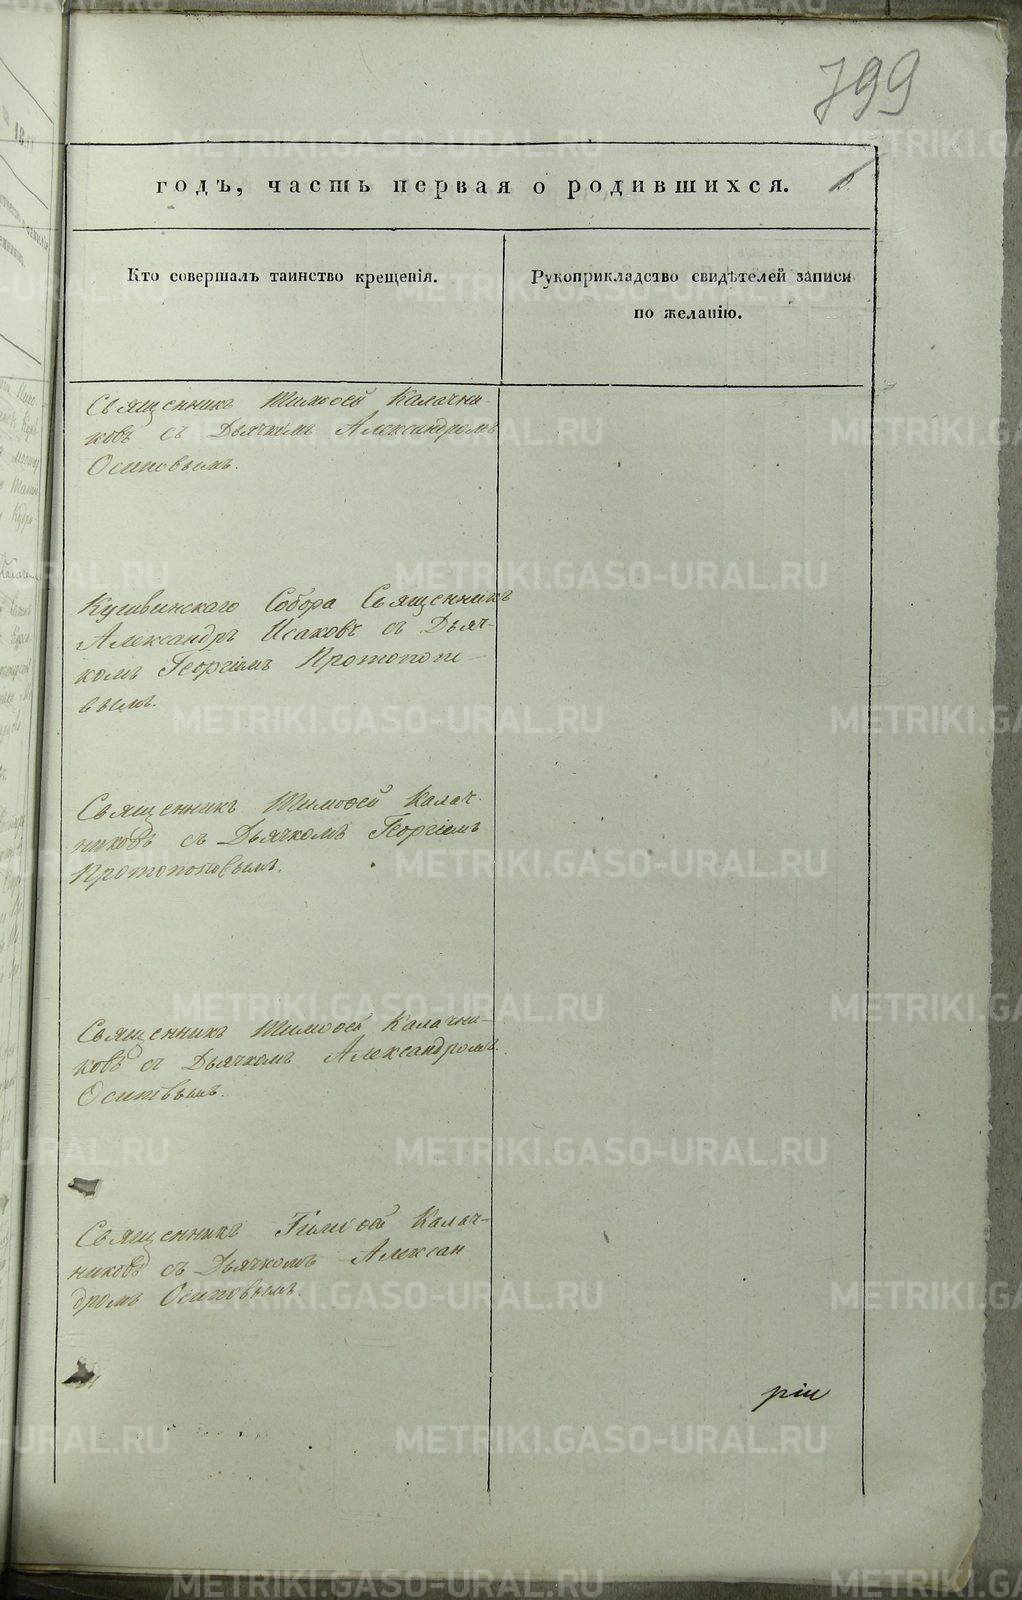 799
годъ, часть первая о родившихся.
Кто совершалъ таинство крещенія.
Рукоприкладство свидѣтелей записи
по желанію.
Священникъ Тимоѳей Калачни-
ковъ съ Дьячкомъ Александромъ
Осиповымъ.
Кушвинскаго Собора Священникъ
Александръ Исаковъ съ Дьяч-
комъ Георгіемъ Протопопо-
вымъ.
Священникъ Тимоѳей Калач-
никовъ съ Дьячкомъ Георгіемъ
Протопоповымъ.
Священникъ Тимоѳей Калачни-
ковъ съ Дьячкомъ Александромъ
Осиповымъ.
Священникъ Тимоѳей Калач-
никовъ съ Дьячкомъ Алексан
дромъ Осиповымъ.
ріи
METRIKI.GASO-URAL.RU